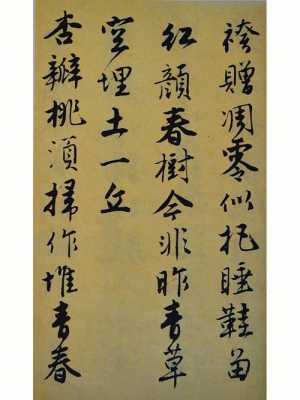 袴贈凋零似把睡鞋留
紅顏春樹今非昨青草
空埋土一丘
杏瓣桃須掃作堆青春